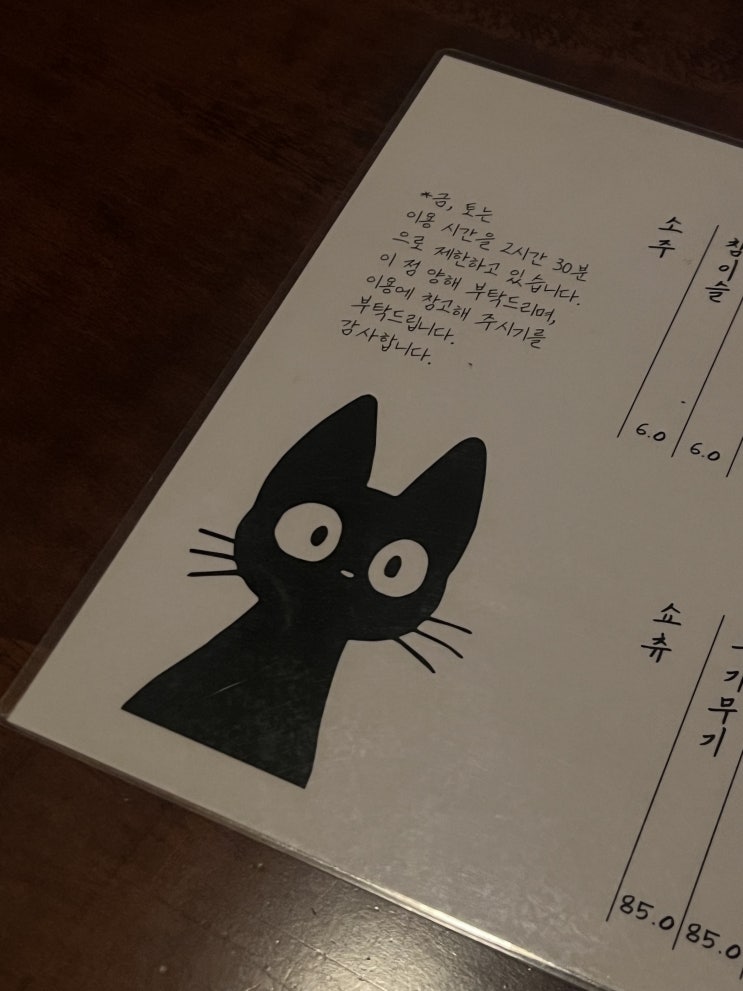 *금, 토는
이용 시간을 2시간 30분
으로 제한하고 있습니다.
이 점 양해 부탁드리며,
이용에 참고해 주시기를
부탁드립니다.
감사합니다.
소주
6.0
참이슬
6.0
쇼츄
85.0
기무기
85.0